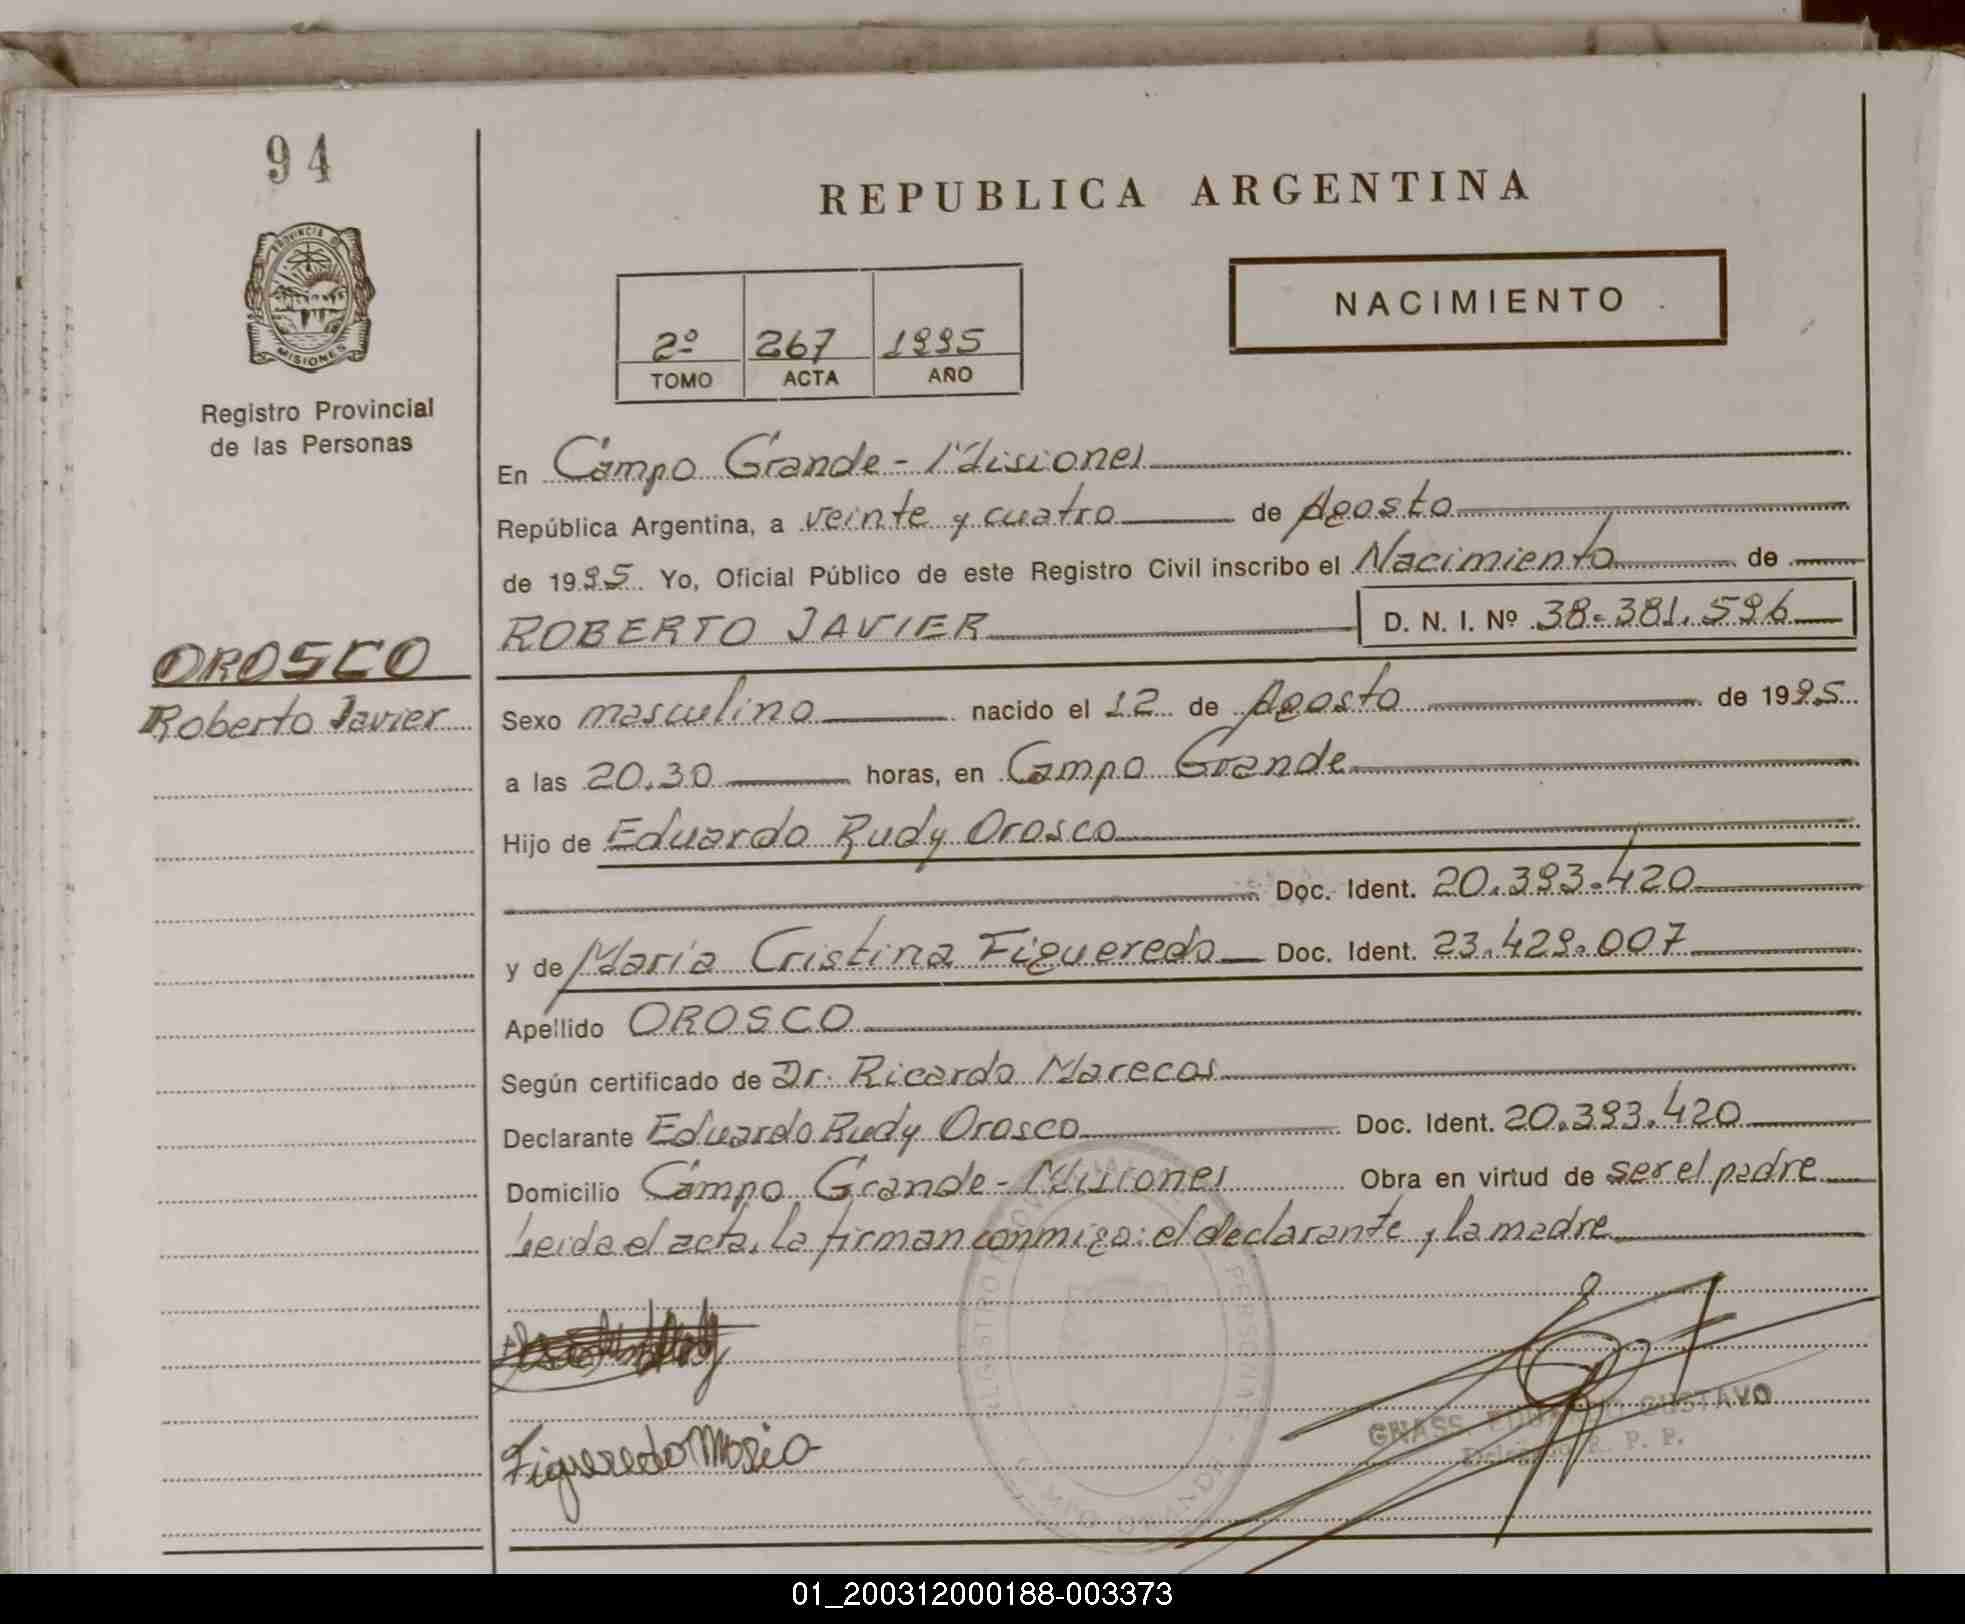 94
REPUBLICA ARGENTINA
PROVINCIA DE
MISIONES
Registro Provincial
de las Personas
NACIMIENTO
2º 267 1995
TOMO ACTA AÑO
En Campo Grande - Misiones
República Argentina, a veinte y cuatro de Agosto
de 1995 Yo, Oficial Público de este Registro Civil inscribo el Nacimiento de
ROBERTO JAVIER D. N. I. Nº 38.381.596
OROSCO
Roberto Javier
Sexo masculino nacido el 12 de Agosto de 1995
a las 20.30 horas, en Campo Grande
Hijo de Eduardo Rudy Orosco
Doc. Ident. 20.393.420
y de María Cristina Figueredo Doc. Ident. 23.429.007
Apellido OROSCO
Según certificado de Dr. Ricardo Marecos
Declarante Eduardo Rudy Orosco Doc. Ident. 20.393.420
Domicilio Campo Grande - Misiones Obra en virtud de ser el padre
Leida el acta, la firman conmigo: el declarante y la madre
Figueredo Maria
GNASS GUSTAVO
R. P. P.
01_200312000188-003373